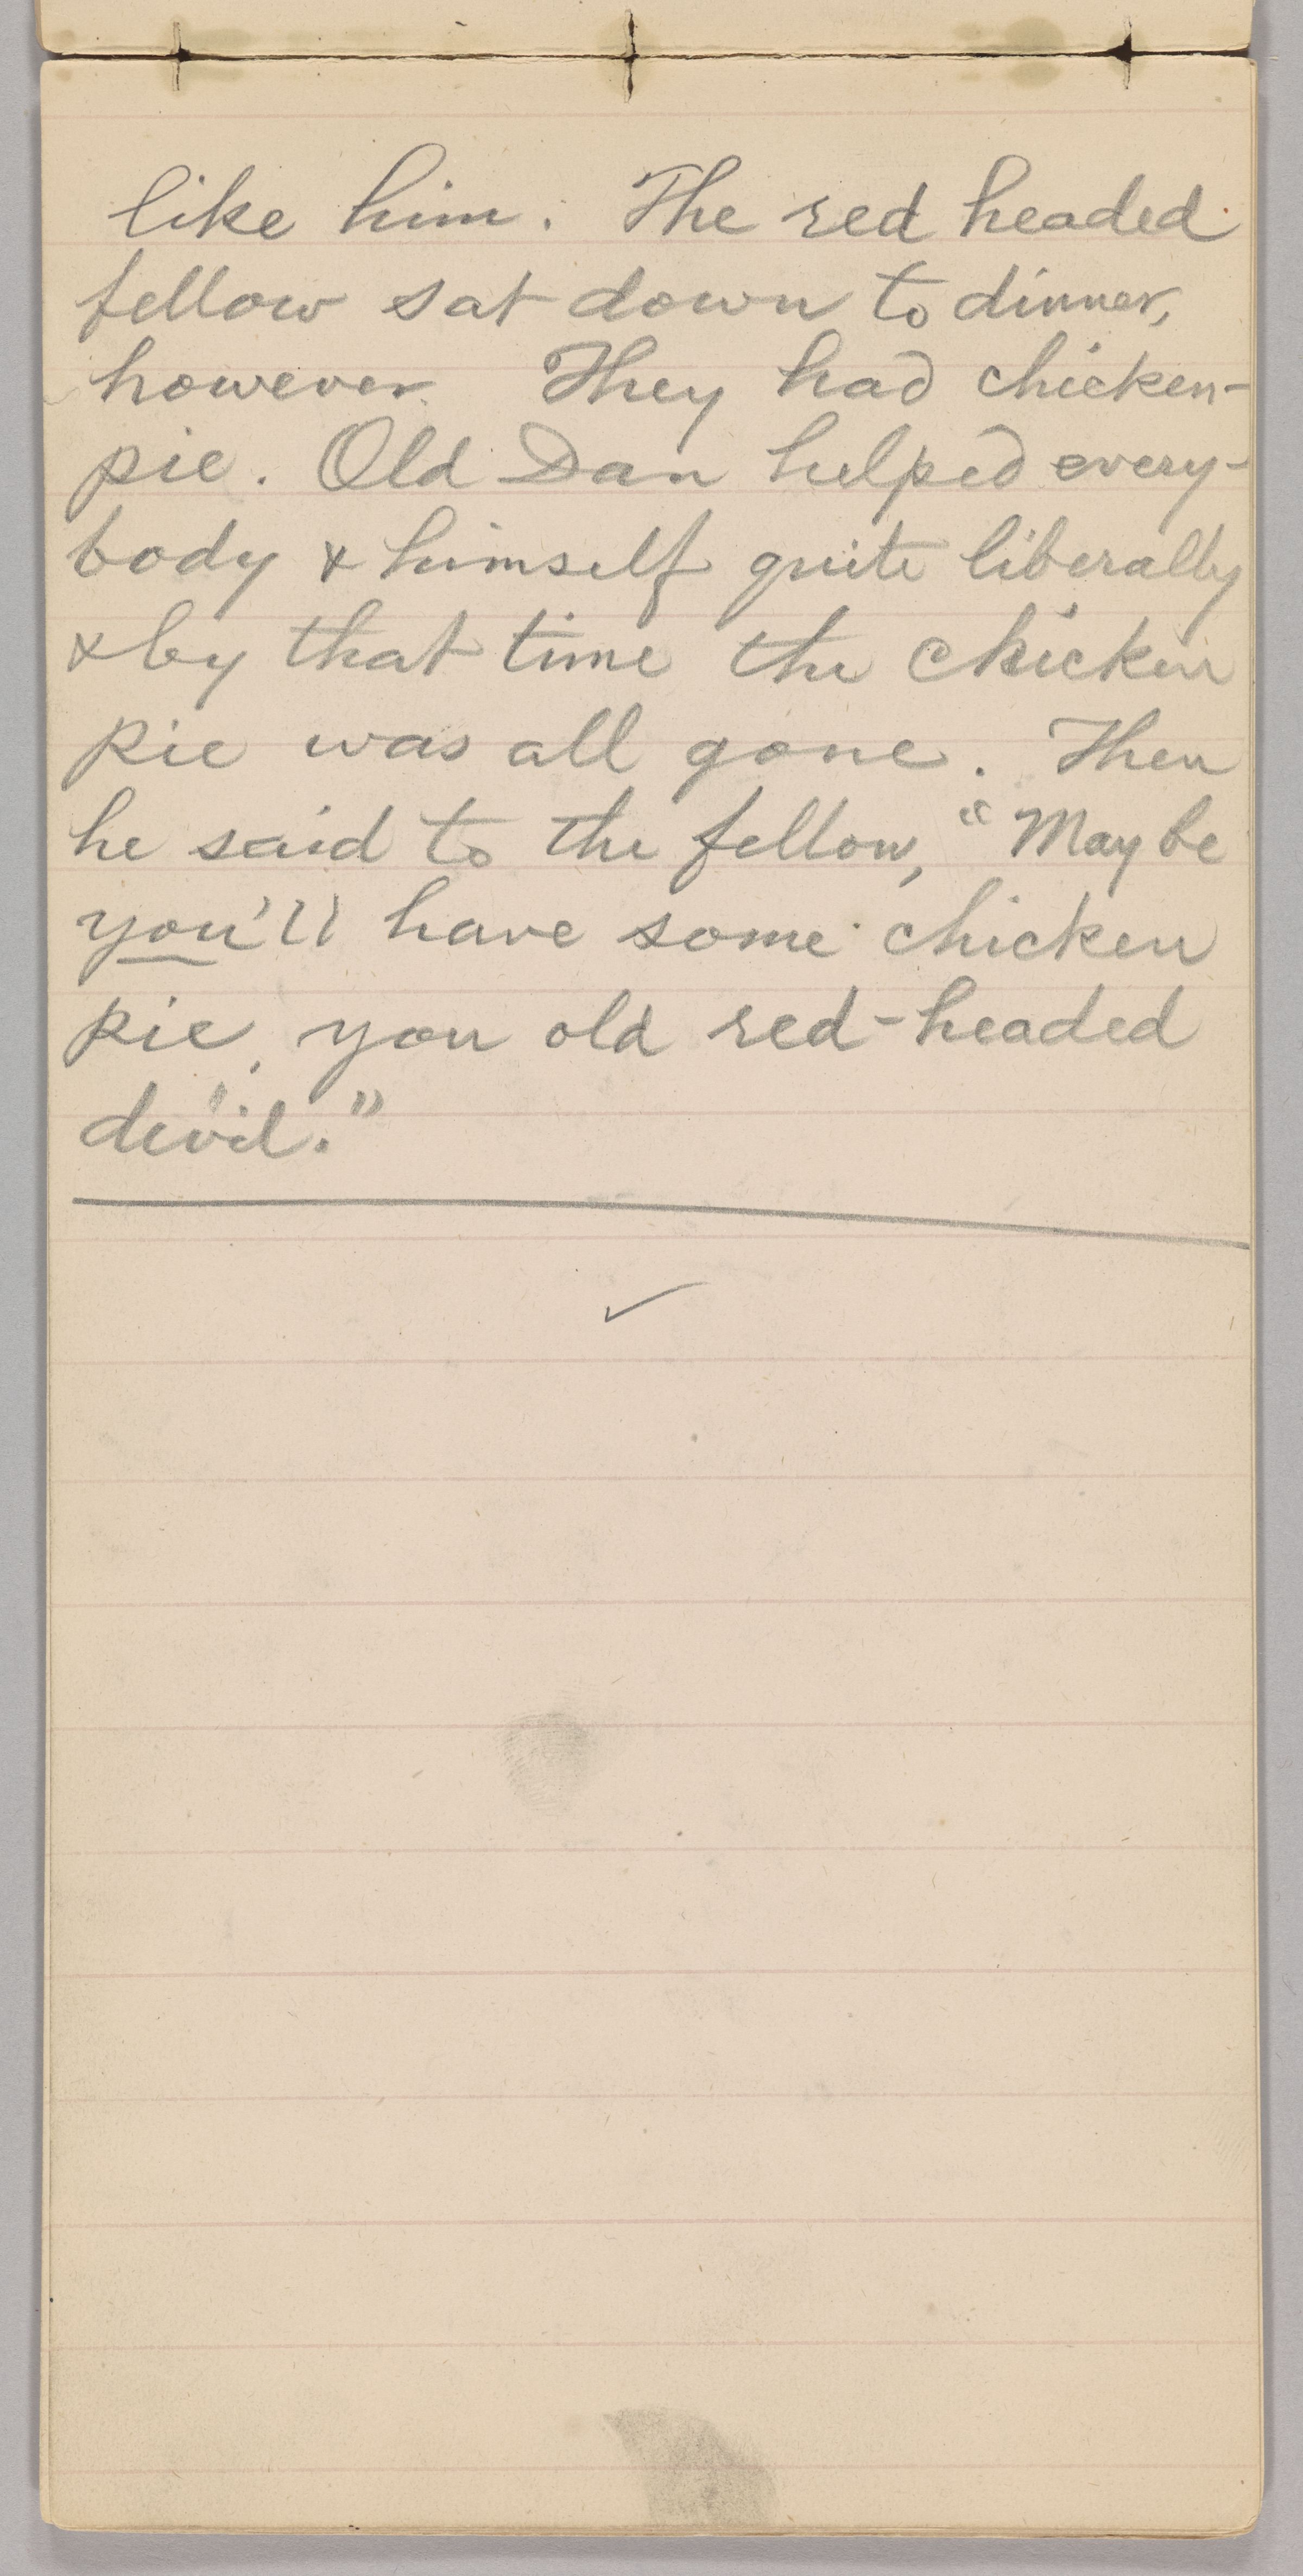 like him. The red headed
fellow sat down to dinner,
however. They had chicken-
pie. Old Dan helped every-
body & himself quite liberally
& by that time the chicken
pie was all gone. Then
he said to the fellow, "Maybe
you'll have some chicken
pie, you old red-headed
devil."